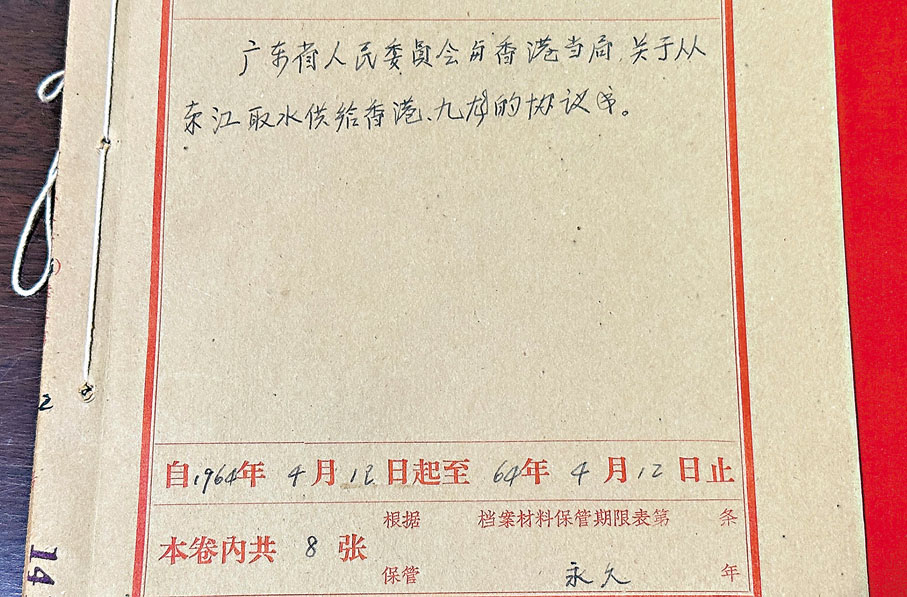 广东省人民委员会与香港当局关于从
东江取水供给香港、九龙的协议书。
自1964年 4月12日起至 64年 4月12日止
根据 档案材料保管期限表第 条
本卷内共 8 张
保管 永久 年
2
14